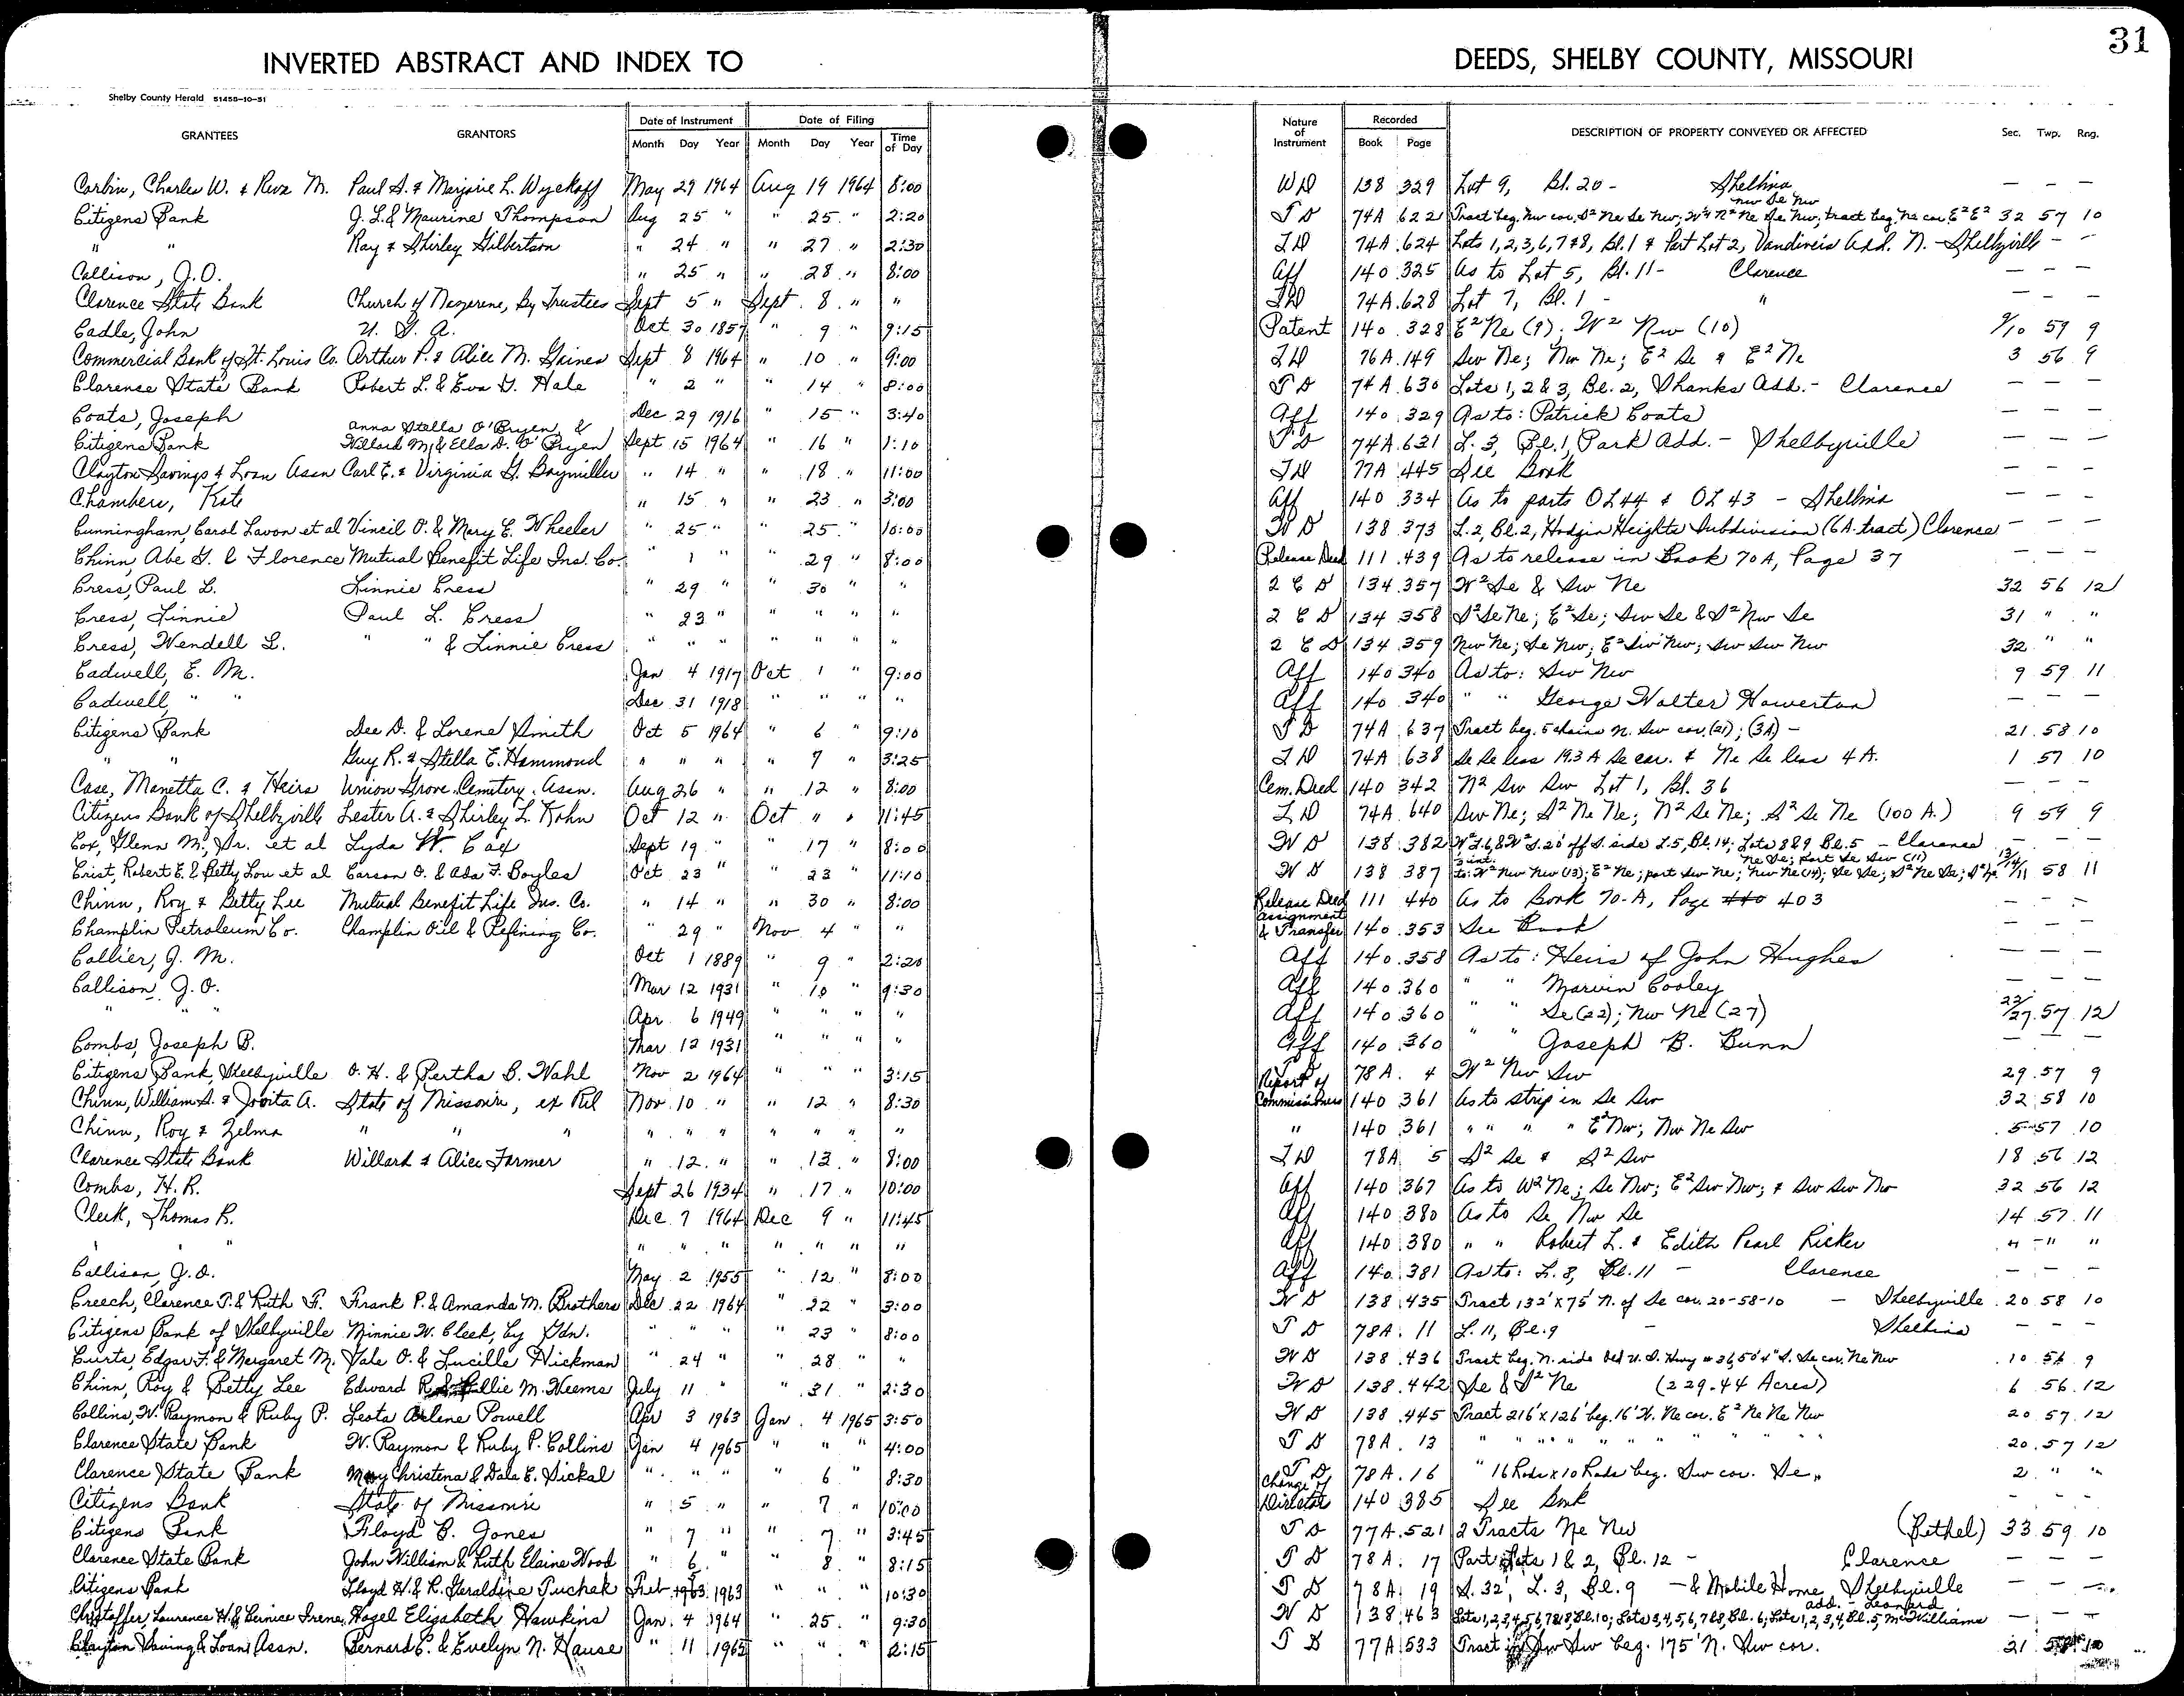 31
INVERTED ABSTRACT AND INDEX TO DEEDS, SHELBY COUNTY, MISSOURI
Shelby County Herald 51458-10-51
GRANTEES GRANTORS Date of Instrument Date of Filing Nature of Instrument Recorded DESCRIPTION OF PROPERTY CONVEYED OR AFFECTED Sec. Twp. Rng.
Month Day Year Month Day Year Time of Day Book Page
Corbin, Charles W. & Reva M. Paul S. & Marjorie L. Wyckoff May 29 1964 Aug 19 1964 8:00 WD 138 329 Lot 9, Bl. 20 - Shelbina — — —
Citizens Bank J. L. & Maurine Thompson Aug 25 " " 25 " 2:20 TD 74A 622 Tract beg. Nw cor. S² Ne Se Nw; W¾ N² Ne Se Nw; tract beg. Ne cor E² E² Nw Se Nw 32 57 10
" " Ray & Shirley Gilbertson " 24 " " 27 " 2:30 TD 74A 624 Lots 1, 2, 3, 6, 7 & 8, Bl. 1 & Part Lot 2, Vandiveis Add. N. - Shelbyville - -
Callison, J. O. " 25 " " 28 " 8:00 Aff 140 325 As to Lot 5, Bl. 11 - Clarence — — —
Clarence State Bank Church of Nazarene, By Trustees Sept 5 " Sept. 8 " " TD 74A 628 Lot 7, Bl. 1 - " — — —
Cadle, John U. S. A. Oct 30 1857 " 9 " 9:15 Patent 140 328 E² Ne (9); W² Nw (10) 9/10 59 9
Commercial Bank of St. Louis Co. Arthur P. & Alice M. Gaines Sept 8 1964 " 10 " 9:00 TD 76A 149 Sw Ne; Nw Ne; E² Se & E² Ne 3 56 9
Clarence State Bank Robert L. & Eva G. Hale " 2 " " 14 " 8:00 TD 74A 630 Lots 1, 2 & 3, Bl. 2, Shanks Add. - Clarence — — —
Coats, Joseph Dec 29 1916 " 15 " 3:40 Aff 140 329 As to: Patrick Coats — — —
Citizens Bank Anna Stella O'Bryen & Willard M. & Ella D. O'Bryen Sept 15 1964 " 16 " 1:10 TD 74A 631 L. 3, Bl. 1, Park Add. - Shelbyville — — —
Clayton Savings & Loan Assn Carl E. & Virginia G. Baymiller " 14 " " 18 " 11:00 TD 77A 445 See Book — — —
Chambers, Kate " 15 " " 23 " 3:00 Aff 140 334 As to parts OL 44 & OL 43 - Shelbina — — —
Cunningham, Carol Lavon et al Vincil O. & Mary E. Wheeler " 25 " " 25 " 10:00 WD 138 373 L. 2, Bl. 2, Hodgin Heights Subdivision (6A. tract) Clarence — — —
Chinn, Abe G. & Florence Mutual Benefit Life Ins. Co. " 1 " " 29 " 8:00 Release Deed 111 439 As to release in Book 70A, Page 37 — — —
Cress, Paul L. Linnie Cress " 29 " " 30 " " 2 C D 134 357 W² Se & Sw Ne 32 56 12
Cress, Linnie Paul L. Cress " 23 " " " " " 2 C D 134 358 S² Se Ne; E² Se; Sw Se & S² Nw Se 31 " "
Cress, Wendell L. " " & Linnie Cress " " " " " " " 2 C D 134 359 Nw Ne; Se Nw; E² Sw Nw; Sw Sw Nw 32 " "
Cadwell, E. M. Jan 4 1917 Oct 1 " 9:00 Aff 140 340 As to: Sw Nw 9 59 11
Cadwell, " " Dec 31 1918 " " " " Aff 140 340 " " George Walter Howerton — — —
Citizens Bank Dee D. & Lorene Smith Oct 5 1964 " 6 " 9:10 TD 74A 637 Tract beg. 5 chains N. Sw cor. (21); (3A) - 21 58 10
" " Guy R. & Stella E. Hammond " " " " 7 " 3:25 TD 74A 638 Se Se less 19.3 A Se cor. & Ne Se less 4 A. 1 57 10
Case, Manetta C. & Heirs Union Grove Cemetery Assn. Aug 26 " " 12 " 8:00 Cem. Deed 140 342 N² Sw Sw Lot 1, Bl. 36 — — —
Citizens Bank of Shelbyville Lester A. & Shirley L. Kohn Oct 12 " Oct " " 11:45 TD 74A 640 Sw Ne; S² Ne Ne; N² Se Ne; S² Se Ne (100 A.) 9 59 9
Cox, Glenn M., Sr. et al Lyda W. Cox Sept 19 " " 17 " 8:00 WD 138 382 20' off S. side L. 5, Bl. 14; Lots 8 & 9 Bl. 5 - Clarence — — —
Crist, Robert E. & Betty Lou et al Carson O. & Ada F. Boyles Oct 23 " " 23 " 11:10 WD 138 387 to: W² Nw Nw (13); E² Ne; part Sw Ne; Nw Ne (14); Se Se; S² Ne Se; Ne Se; part Se Sw (11) 13/14/11 58 11
Chinn, Roy & Betty Lee Mutual Benefit Life Ins. Co. " 14 " " 30 " 8:00 Release Deed 111 440 As to Book 70-A, Page 403 — — —
Champlin Petroleum Co. Champlin Oil & Refining Co. " 29 " Nov 4 " " Assignment & Transfer 140 353 See Book — — —
Collier, J. M. Oct 1 1889 " 9 " 2:20 Aff 140 358 As to: Heirs of John Hughes — — —
Callison, J. O. Mar 12 1931 " 10 " 9:30 Aff 140 360 " " Marvin Cooley — — —
" " " Apr 6 1949 " " " " Aff 140 360 " " Se (22); Nw Ne (27) 22/27 57 12
Combs, Joseph B. Mar 12 1931 " " " " Aff 140 360 " " Joseph B. Bunn — — —
Citizens Bank, Shelbyville O. H. & Bertha B. Wahl Nov 2 1964 " " " 3:15 TD 78A 4 W² Nw Sw 29 57 9
Chinn, William S. & Jovita A. State of Missouri, ex Rel Nov. 10 " " 12 " 8:30 Report of Commissioners 140 361 As to strip in Se Sw 32 58 10
Chinn, Roy & Zelma " " " " " " " " " " " 140 361 " " " " E² Nw; Nw Ne Sw 5 57 10
Clarence State Bank Willard & Alice Farmer " 12 " " 13 " 8:00 TD 78A 5 S² Se & S² Sw 18 56 12
Combs, H. R. Sept 26 1934 " 17 " 10:00 Aff 140 367 As to W² Ne; Se Nw; E² Sw Nw; & Sw Sw Nw 32 56 12
Cleek, Thomas R. Dec 7 1964 Dec 9 " 11:45 Aff 140 380 As to Se Nw Se 14 57 11
" " " " " " " " " " Aff 140 380 " " Robert L. & Edith Pearl Ricker " " "
Callison, J. O. May 2 1955 " 12 " 8:00 Aff 140 381 As to: L. 8, Bl. 11 - Clarence — — —
Creech, Clarence T. & Ruth F. Frank P. & Amanda M. Brothers Dec 22 1964 " 22 " 3:00 WD 138 435 Tract 132' x 75' N. of Se cor. 20-58-10 - Shelbyville 20 58 10
Citizens Bank of Shelbyville Minnie W. Cleek, by Gdn. " " " " 23 " 8:00 TD 78A 11 L. 11, Bl. 9 - Shelbina — — —
Curts, Edgar F. & Margaret M. Yale O. & Lucille Hickman " 24 " " 28 " " WD 138 436 Tract beg. N. side Old U. S. Hwy #36, 50'4" S. Se cor. Ne Nw 10 56 9
Chinn, Roy & Betty Lee Edward R. & Lillie M. Weems July 11 " " 31 " 2:30 WD 138 442 Se & S² Ne (229.44 Acres) 6 56 12
Collins, W. Raymon & Ruby P. Leota Arlene Powell Apr 3 1963 Jan. 4 1965 3:50 WD 138 445 Tract 216' x 126' beg. 16' W. Ne cor. E² Ne Ne Nw 20 57 12
Clarence State Bank W. Raymon & Ruby P. Collins Jan 4 1965 " " " 4:00 TD 78A 13 " " " " " " " " " " " 20 57 12
Clarence State Bank May Christena & Dale E. Sickal " " " " 6 " 8:30 TD 78A 16 " 16 Rods x 10 Rods beg. Sw cor. Se 2 " "
Citizens Bank State of Missouri " 5 " " 7 " 10:00 Change of Director 140 385 See Book - - -
Citizens Bank Floyd C. Jones " 7 " " 7 " 3:45 TD 77A 521 2 Tracts Ne Nw (Bethel) 33 59 10
Clarence State Bank John William & Ruth Elaine Wood " 6 " " 8 " 8:15 TD 78A 17 Part Lots 1 & 2, Bl. 12 - Clarence — — —
Citizens Bank Lloyd H. & R. Geraldine Puchek Feb 1963 " " " 10:30 TD 78A 19 S. 32', L. 3, Bl. 9 - & Mobile Home, Shelbyville — — —
Christoffer, Laurence H. & Bernice Irene Hazel Elizabeth Hawkins Jan. 4 1964 " 25 " 9:30 WD 138 463 Lots 1, 2, 3, 4, 5, 6, 7 & 8 Bl. 10; Lots 3, 4, 5, 6, 7 & 8, Bl. 6; Lots 1, 2, 3, 4, Bl. 5, McWilliams add. - Leonard — — —
Clayton Saving & Loan Assn. Bernard C. & Evelyn N. Hause " 11 1965 " " " 2:15 TD 77A 533 Tract in Sw Sw beg. 175' N. Sw cor. 21 10